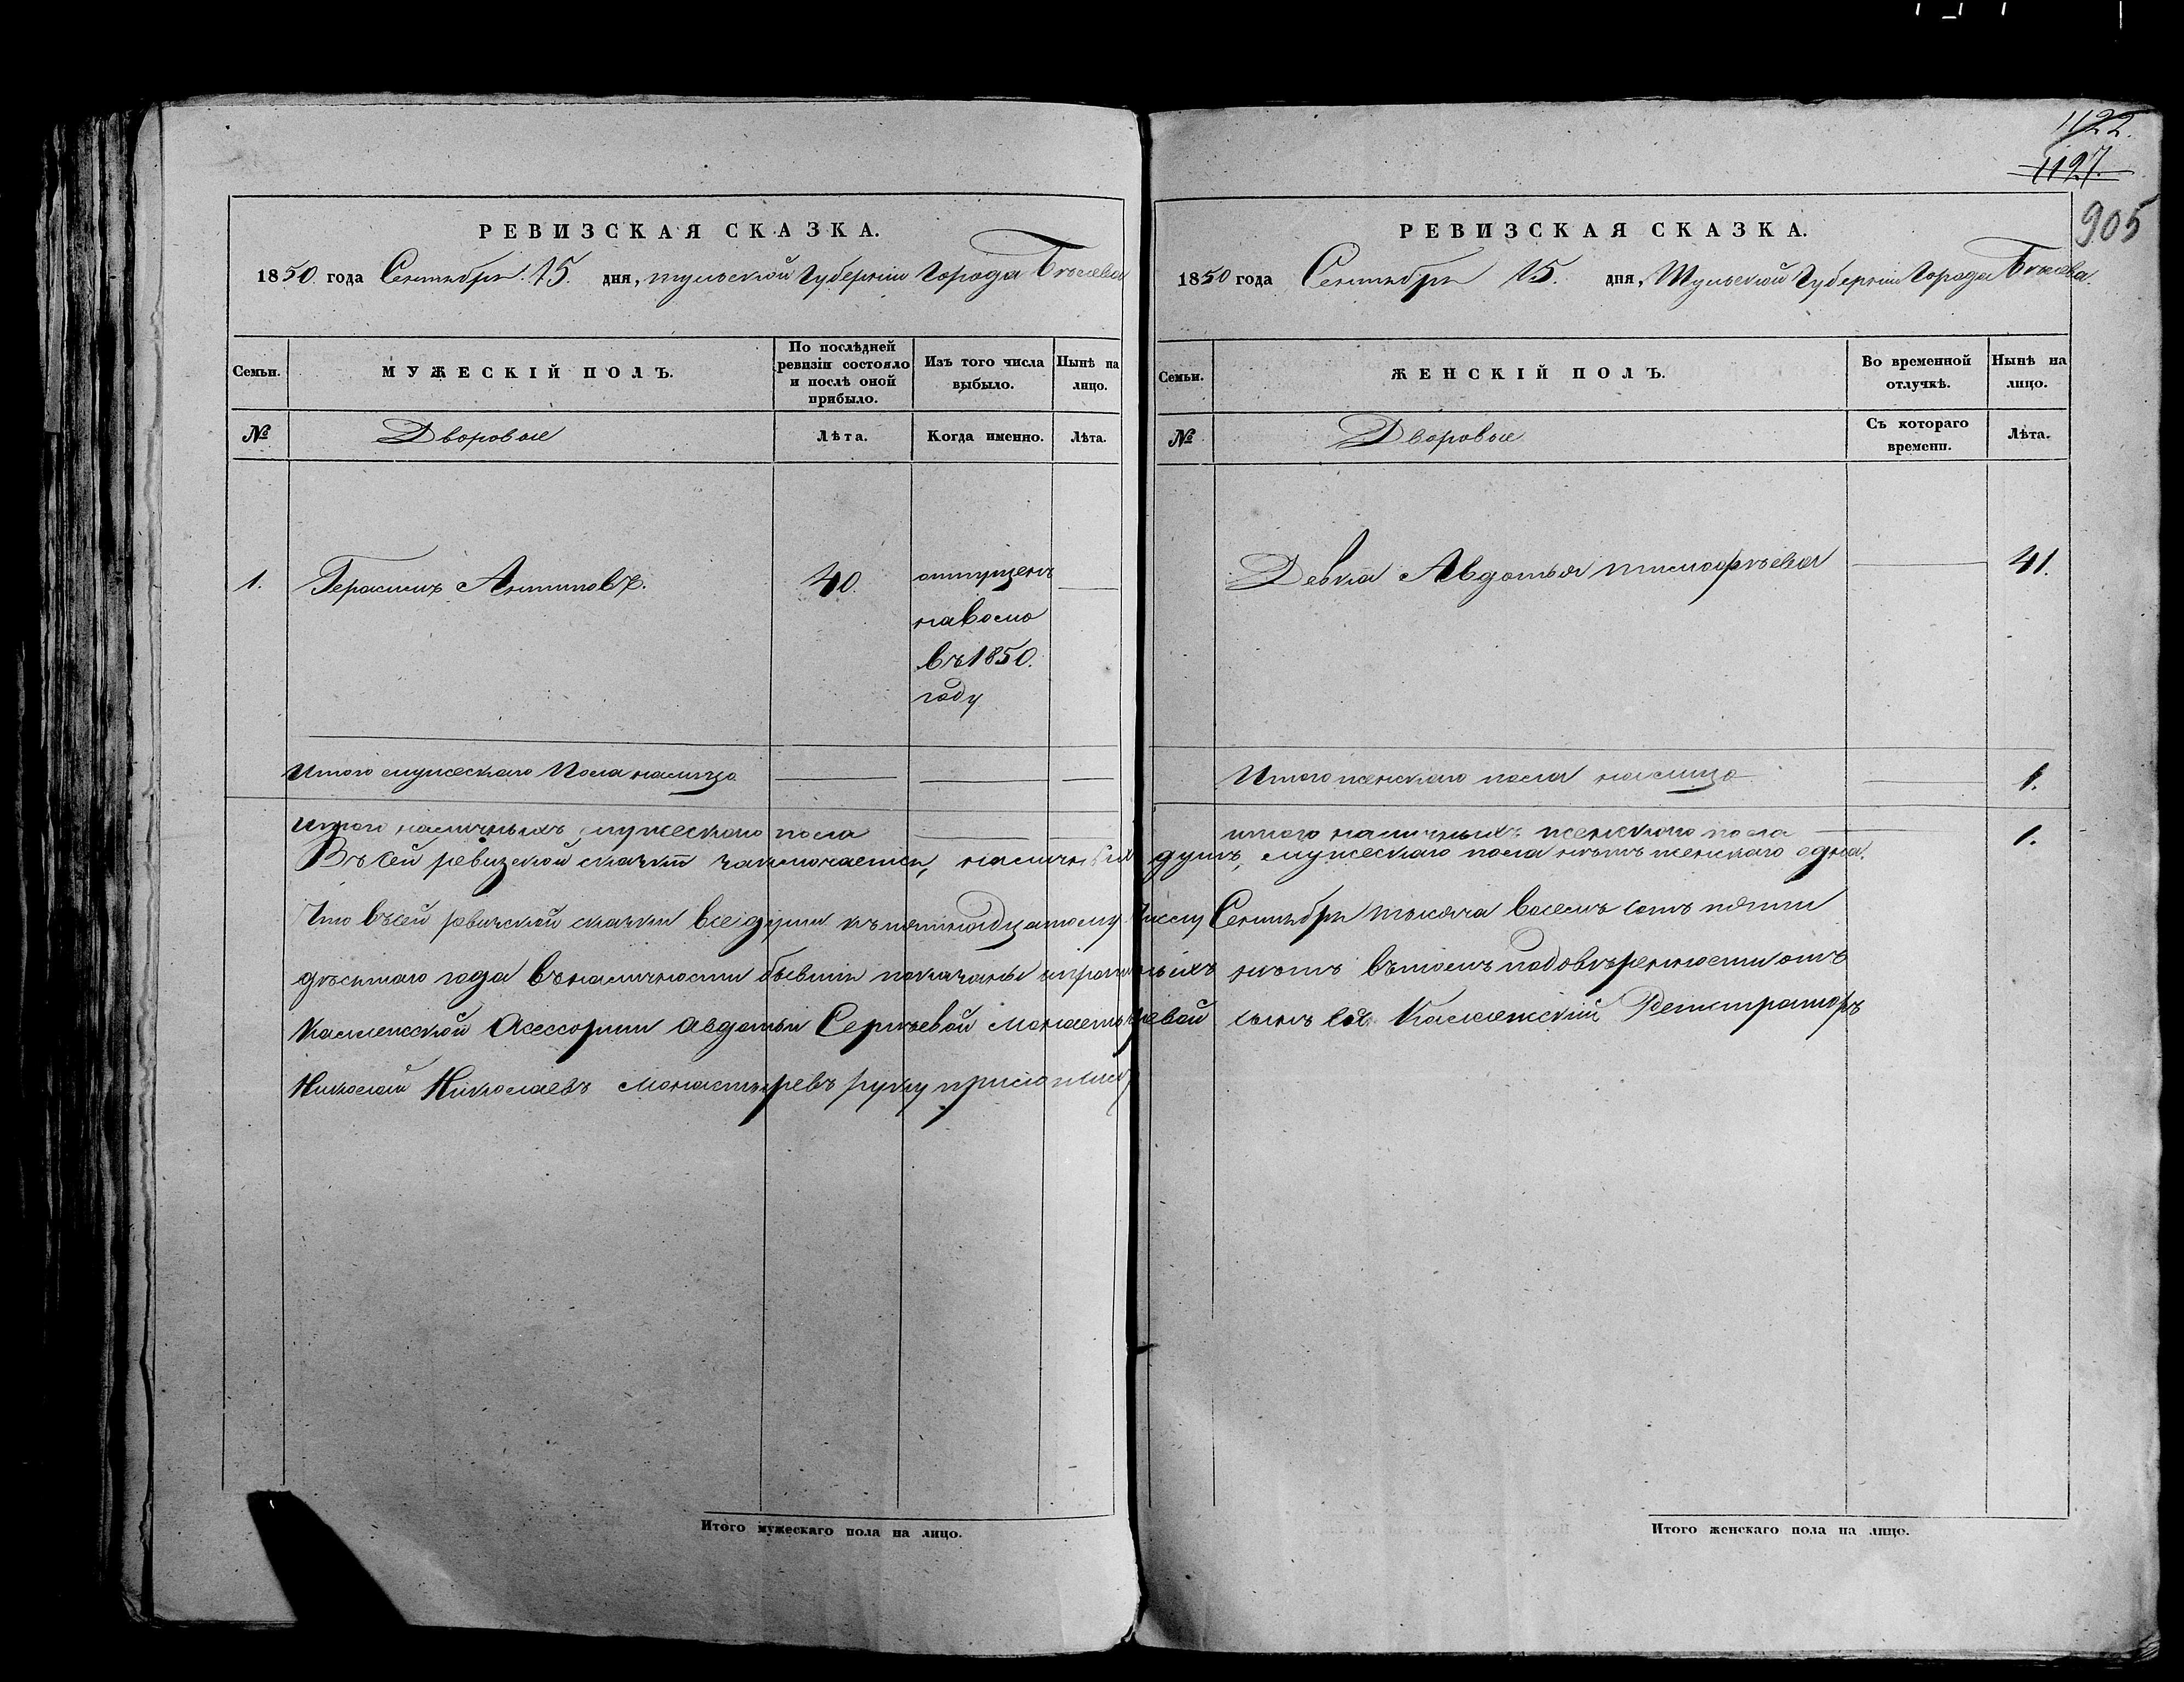 1122.
1127.
905
РЕВИЗСКАЯ СКАЗКА.
1850 года Сентября 15. дня, тульской Губерніи Города Бѣлева
Семьи.
МУЖЕСКІЙ ПОЛЪ.
По послѣдней ревизіи состояло и послѣ оной прибыло.
Изъ того числа выбыло.
Нынѣ на лицо.
№
Дворовые
Лѣта.
Когда именно.
Лѣта.
1. Герасимъ Антиповъ. 40. отпущенъ
наволю
въ 1850.
году
Итого мужескаго Пола налицо
Итого наличныхъ мужескаго пола
РЕВИЗСКАЯ СКАЗКА.
1850 года Сентября 15. дня, Тульской Губерніи Города Бѣлева.
Семьи.
ЖЕНСКІЙ ПОЛЪ.
Во временной отлучкѣ.
Нынѣ на лицо.
№
Дворовые
Съ котораго времени.
Лѣта.
Девка Авдотья тимофѣева 41.
Итого женскаго пола налицо 1.
итого наличныхъ женскаго пола 1.
Въ сей ревизской сказки заключается, наличныхъ душъ, мужескаго пола нѣтъ женскаго одна.
Что въсей ревизской сказки все души къ пятнадцатому числу Сентября тысяча восемь сотъ пяти
десятаго года въналичности бывшія показаны ипрописныхъ нѣтъ вътомъ подовѣренности отъ
Коллежской Асессорши Авдотьи Сергѣевой Монастыревой сынъ ея Коллежский Регистраторъ
Николай Николаевъ Монастыревъ руку приложилъ
Итого мужескаго пола на лицо.
Итого женскаго пола на лицо.